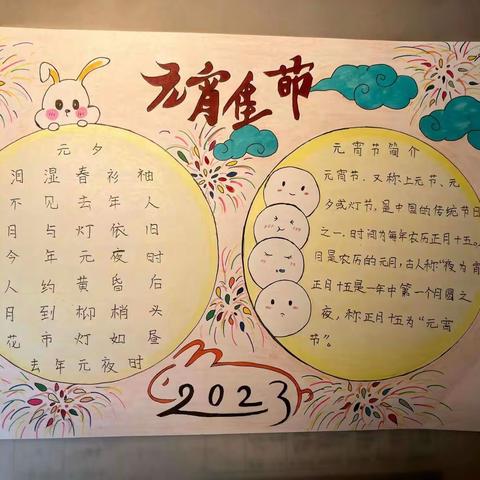 元宵佳节
元夕
泪湿春衫袖
不见去年人
月与灯依旧
今年元夜时
人约黄昏后
月到柳梢头
花市灯如昼
去年元夜时
元宵节简介
元宵节，又称上元节、元
夕或灯节，是中国的传统节日
之一，时间为每年农历正月十五。
月是农历的元月，古人称“夜为宵
正月十五是一年中第一个月圆之
夜，称正月十五为“元宵
节”。
2023